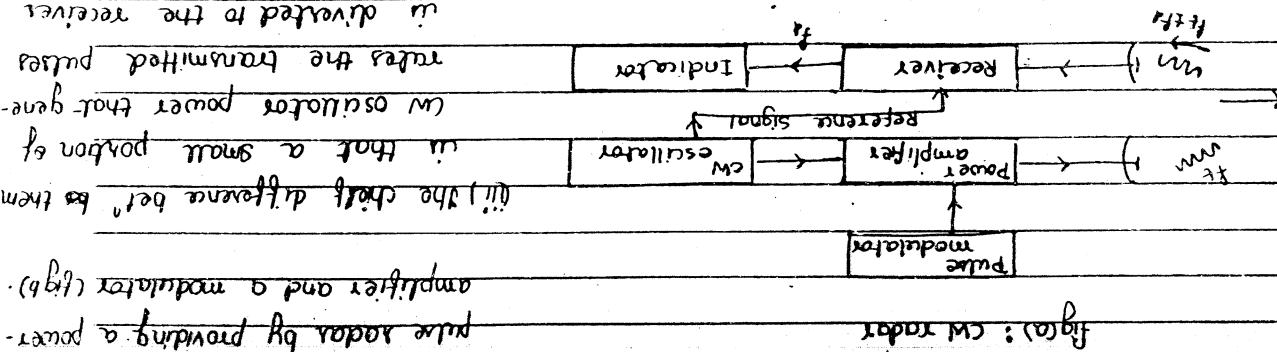 fig(a) : CW radar
pulse radar by providing a power-
amplifier and a modulator (fig b).
Pulse
modulator
(ii) The chief difference betn them
is that a small portion of
CW oscillator power that gene-
rates the transmitted pulses
is diverted to the receiver
ft
Power
amplifier
CW
oscillator
Reference Signal
ft ± fd
Receiver
fd
Indicator